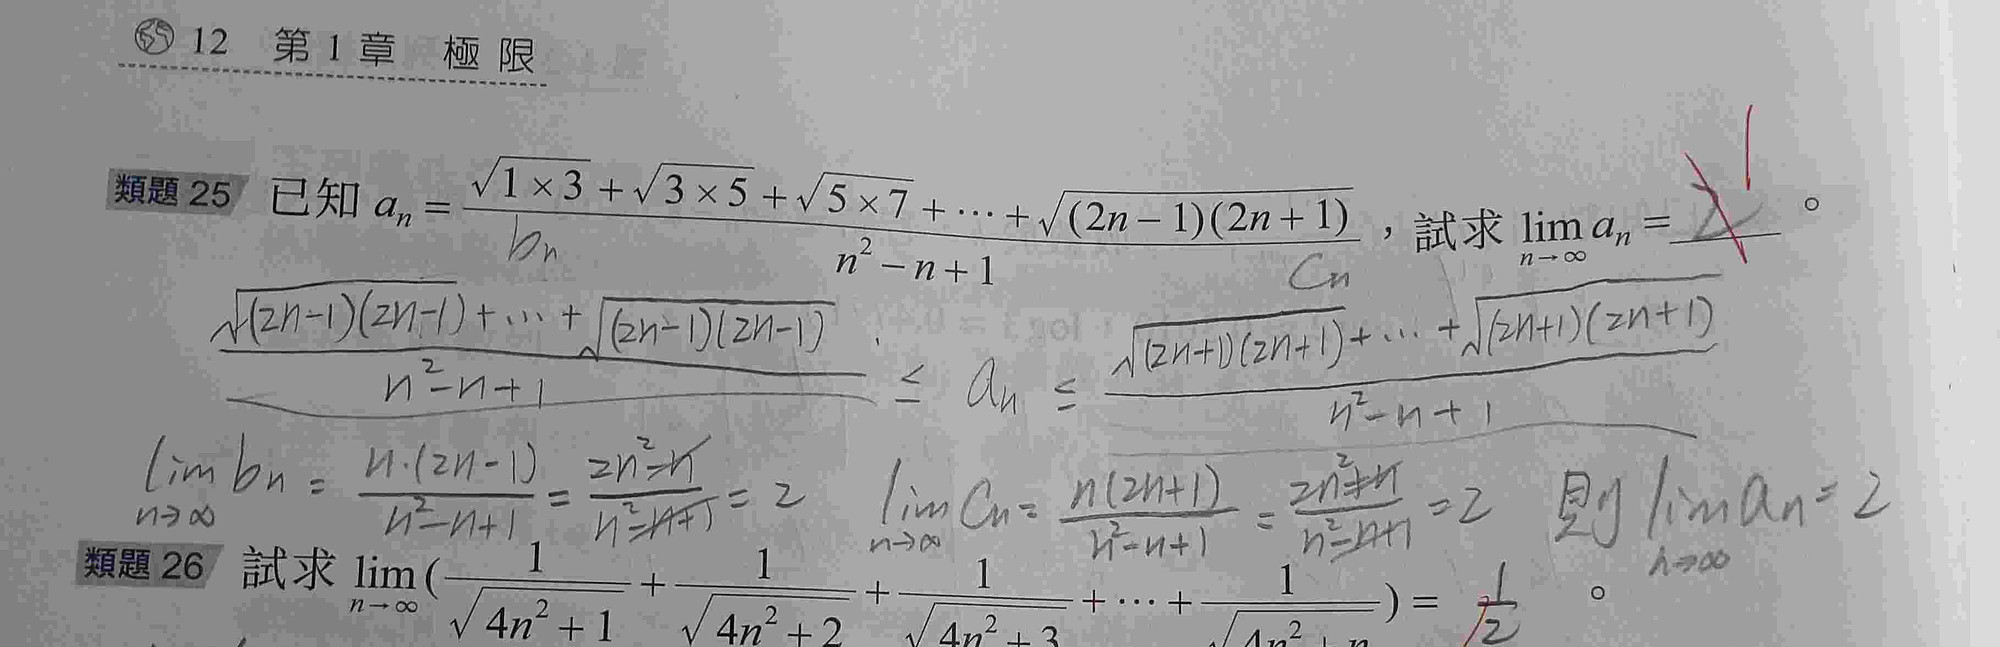 12 第1章 極限
類題 25 已知 aₙ = (√(1×3) + √(3×5) + √(5×7) + ⋯ + √((2n−1)(2n+1))) / (n² − n + 1) ,試求 lim_{n→∞} aₙ = 2 1 。
bₙ Cₙ
(√((2n−1)(2n−1)) + ⋯ + √((2n−1)(2n−1))) / (n²−n+1) ≤ aₙ ≤ (√((2n+1)(2n+1)) + ⋯ + √((2n+1)(2n+1))) / (n²−n+1)
lim_{n→∞} bₙ = n·(2n−1) / (n²−n+1) = (2n²−n) / (n²−n+1) = 2 lim_{n→∞} Cₙ = n(2n+1) / (n²−n+1) = (2n²+n) / (n²−n+1) = 2 則 lim_{n→∞} aₙ = 2
類題 26 試求 lim_{n→∞} ( 1/√(4n²+1) + 1/√(4n²+2) + 1/√(4n²+3) + ⋯ + 1/√(4n²+n) ) = 1/2 。